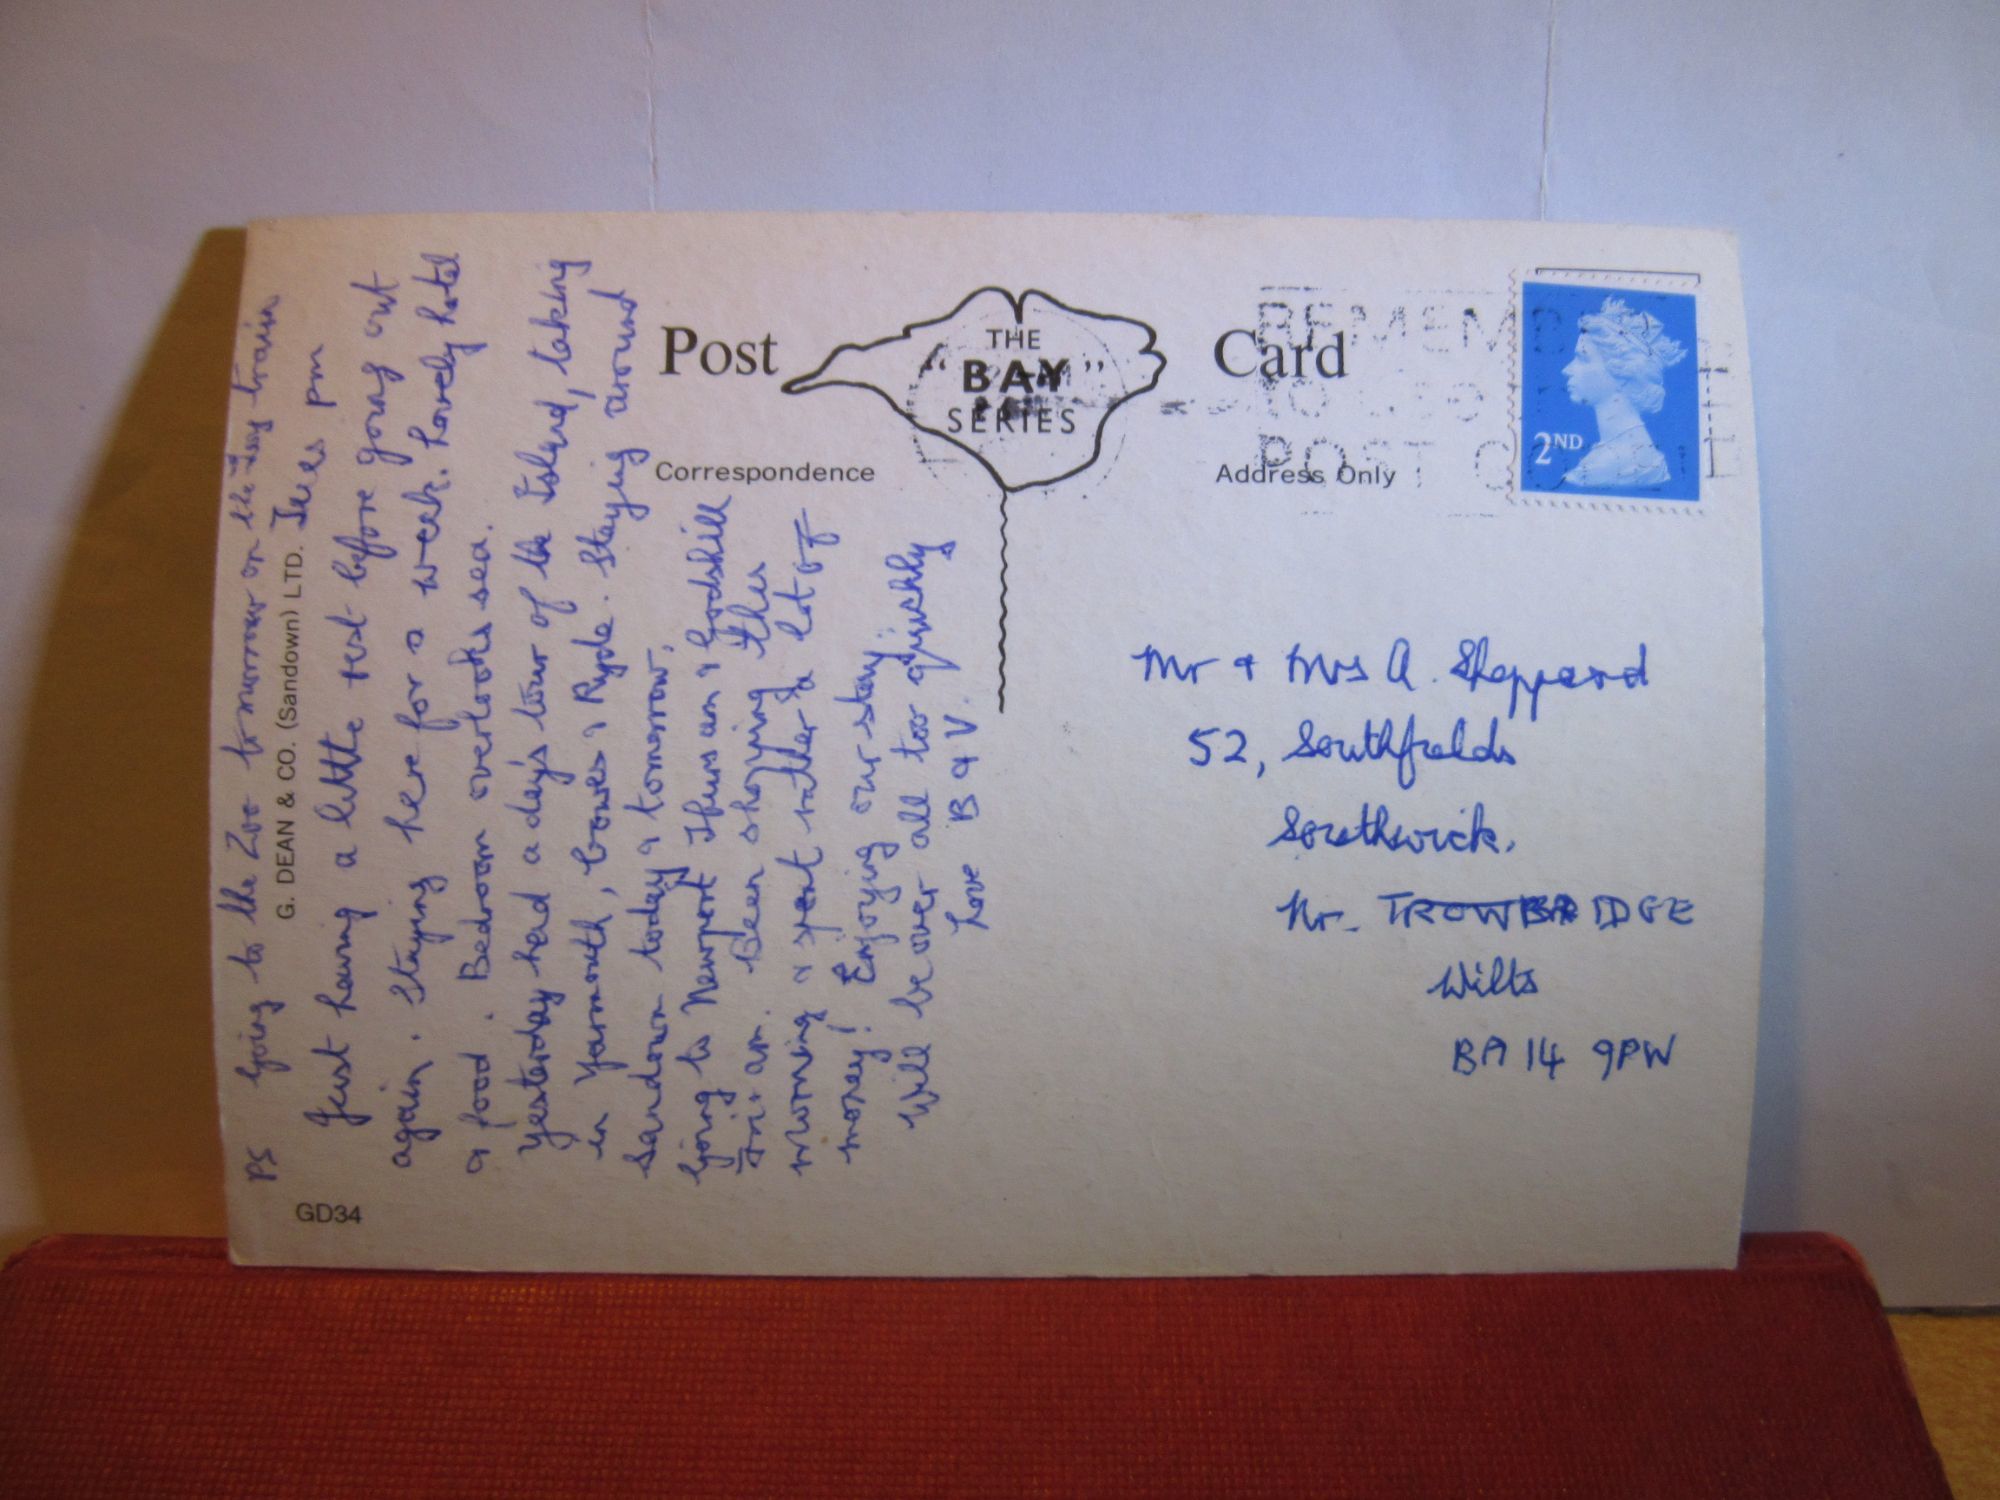 Post Card
THE
"BAY"
SERIES
Correspondence
Address Only
REMEM
TO USE
POST CO
2ND
G. DEAN & CO. (Sandown) LTD.
GD34
PS Going to the Zoo tomorrow on the tray train
Tues pm
Just having a little rest before going out
again. Staying here for a week. Lovely hotel
& food. Bedroom overlooks sea.
Yesterday had a day's tour of the Island, taking
in Yarmouth, Cowes & Ryde. Staying around
Sandown today & tomorrow.
Going to Newport Thurs am & Godshill
Fri am. Been shopping this
morning & spent rather a lot of
money! Enjoying our stay
Will be over all too quickly
Love B & V.
Mr & Mrs A. Sheppard
52, Southfields
Southwick.
Nr. TROWBRIDGE
Wilts
BA14 9PW